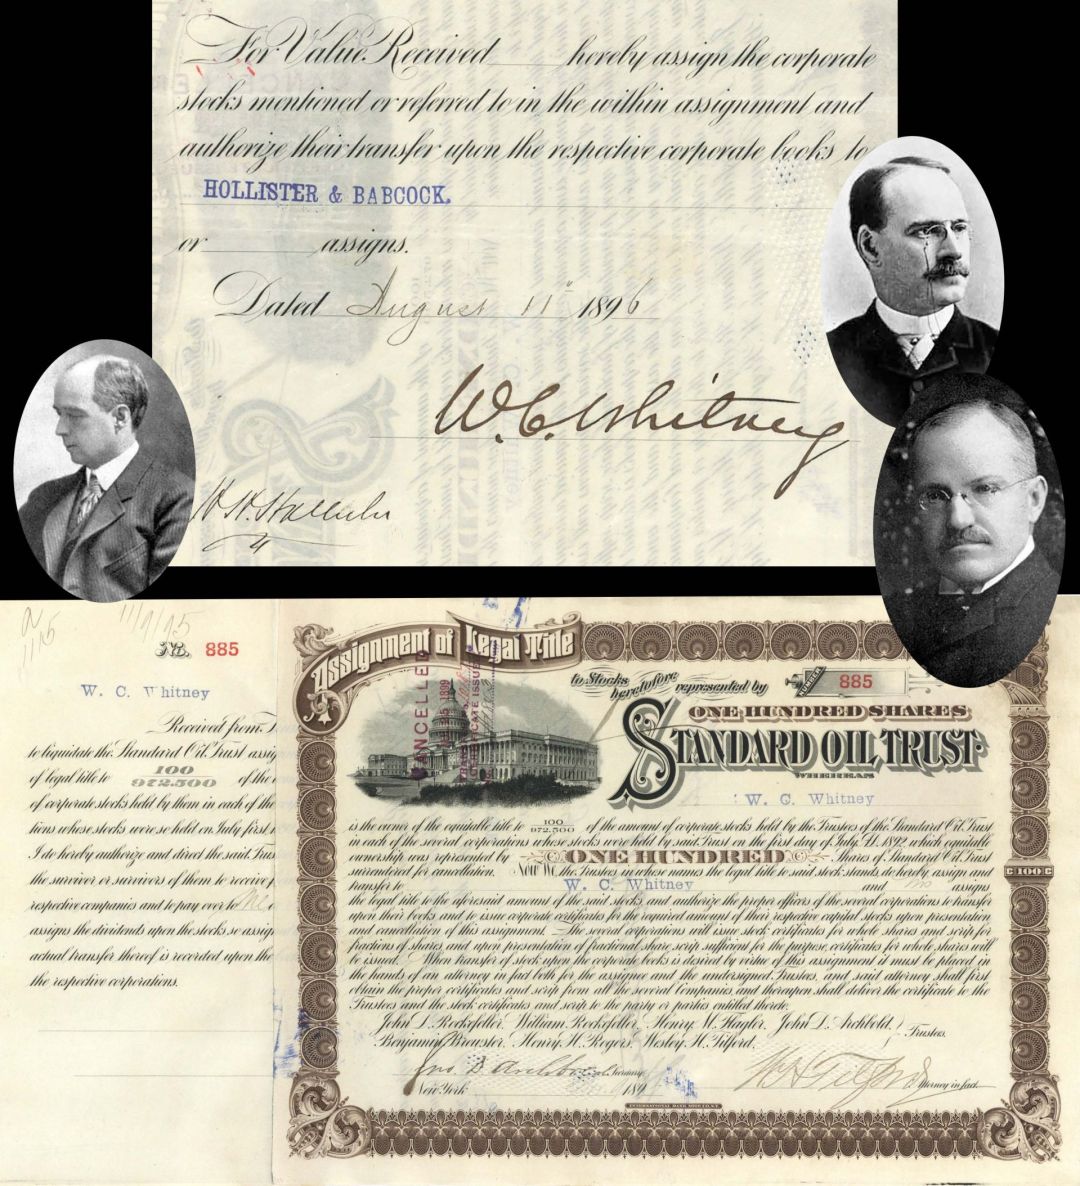 For Value Received hereby assign the corporate
stocks mentioned or referred to in the within assignment and
authorize their transfer upon the respective corporate books to
HOLLISTER & BABCOCK.
or assigns.
Dated August 11" 1896
W. C. Whitney
11/1/15
No. 885
W. C. Whitney
Received from
to liquidate the Standard Oil Trust assig
of legal title to 100/972.500 of the
of corporate stocks held by them in each of the
tions whose stocks were so held on July first
I do hereby authorize and direct the said Trus
the survivor or survivors of them to receive
respective companies and to pay over to me o
assigns the dividends upon the stocks so assig
actual transfer thereof is recorded upon the
the respective corporations.
Assignment of Legal Title
to Stocks heretofore represented by
NUMBER 885
ONE HUNDRED SHARES
STANDARD OIL TRUST
WHEREAS
W. C. Whitney
is the owner of the equitable title to 100/972.500 of the amount of corporate stocks held by the Trustees of the Standard Oil Trust
in each of the several corporations whose stocks were held by said Trust on the first day of July, A.D. 1892, which equitable
ownership was represented by ONE HUNDRED Shares of Standard Oil Trust
surrendered for cancellation. Now We, the Trustees in whose names the legal title to said stock stands, do hereby assign and
transfer to W. C. Whitney and his assigns
the legal title to the aforesaid amount of the said stocks, and authorize the proper officers of the several corporations to transfer
upon their books and to issue corporate certificates for the required amount of their respective capital stocks upon presentation
and cancellation of this assignment. The several corporations will issue stock certificates for whole shares and scrip for
fractions of shares, and upon presentation of fractional share scrip sufficient for the purpose, certificates for whole shares will
be issued. When transfer of stock upon the corporate books is desired by virtue of this assignment it must be placed in
the hands of an attorney in fact both for the assignee and the undersigned Trustees, and said attorney shall first
obtain the proper certificates and scrip from all the several Companies, and thereupon shall deliver the certificate to the
Trustees and the stock certificates and scrip to the party or parties entitled thereto.
John D. Rockefeller, William Rockefeller, Henry M. Flagler, John D. Archbold,
Benjamin Brewster, Henry H. Rogers, Wesley H. Tilford. Trustees.
Jno. D. Archbold Attorney
W H Tilford Attorney in fact
New York 189
CANCELLED
C 100 C
INTERNATIONAL BANK NOTE CO. N.Y.